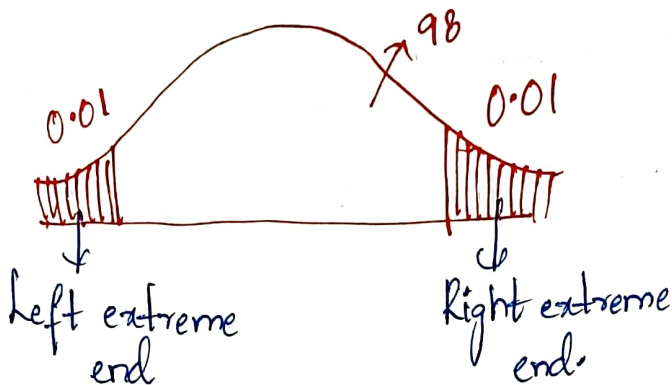 98
0.01
0.01
Left extreme
end
Right extreme
end.